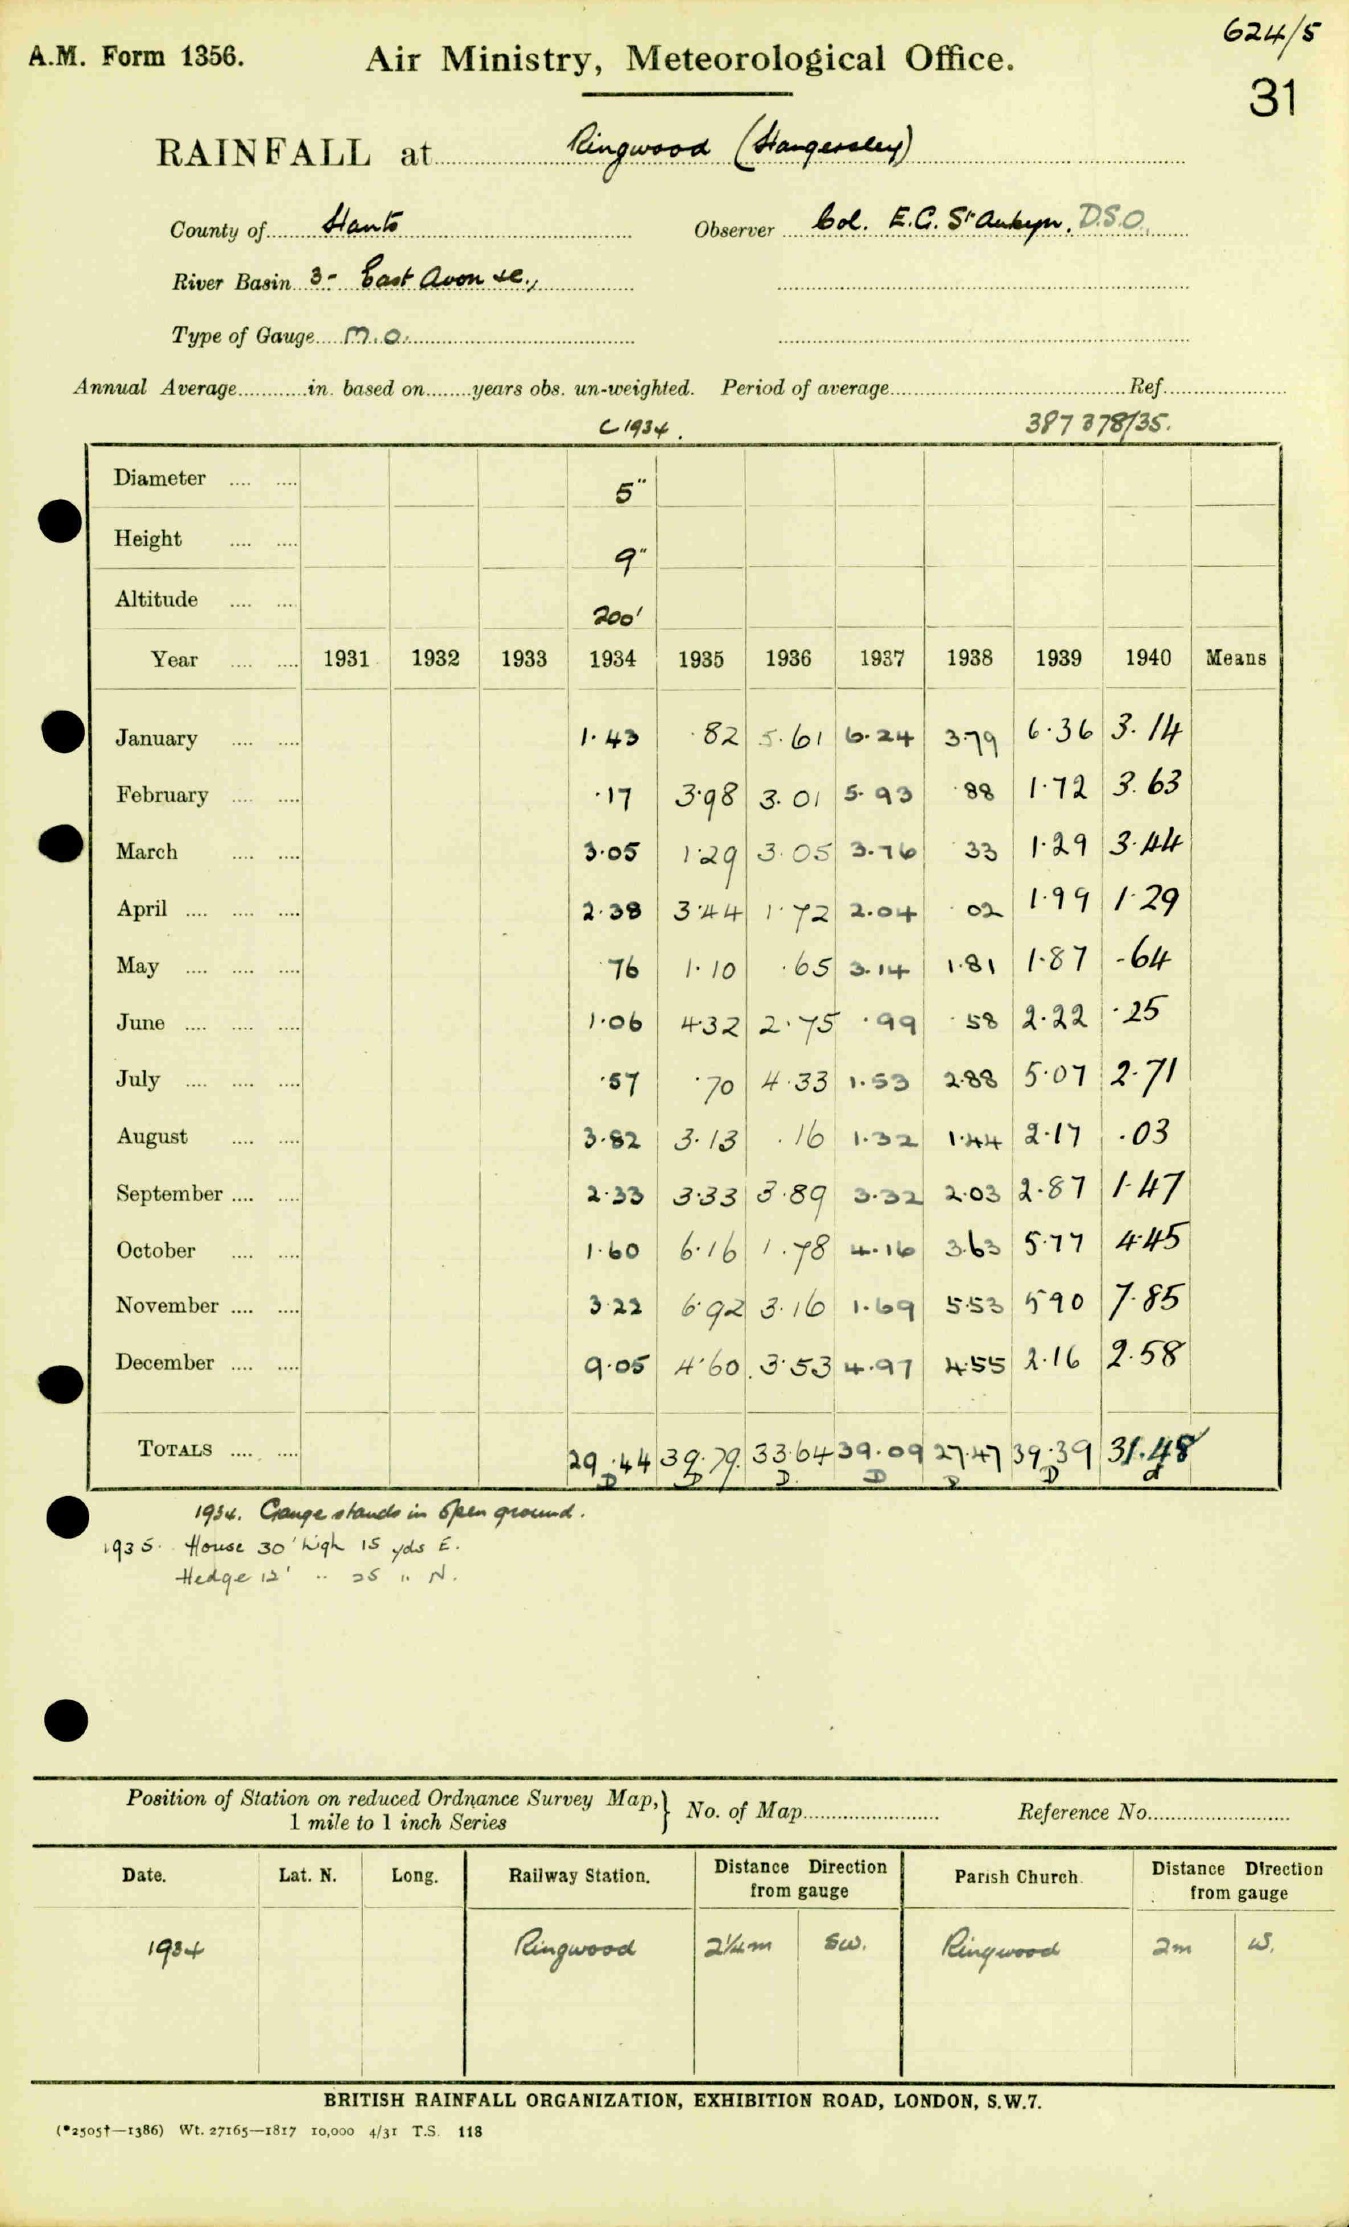 624/5
A.M. Form 1356. Air Ministry, Meteorological Office.
31
RAINFALL at Ringwood (Hangersley)
County of Hants Observer Col. E.G. St Aubyn. D.S.O.
River Basin 3- East Avon &c.,
Type of Gauge M.O.
Annual Average in. based on years obs. un-weighted. Period of average Ref.
C 1934. 387378/35.
Diameter .... .... 5"
Height .... .... 9"
Altitude .... .... 200'
Year .... .... 1931 1932 1933 1934 1935 1936 1937 1938 1939 1940 Means
January .... .... 1.43 .82 5.61 6.24 3.79 6.36 3.14
February .... .... .17 3.98 3.01 5.93 .88 1.72 3.63
March .... .... 3.05 1.29 3.05 3.76 .33 1.29 3.44
April .... .... .... 2.38 3.44 1.72 2.04 .02 1.99 1.29
May .... .... .... .76 1.10 .65 3.14 1.81 1.87 .64
June .... .... .... 1.06 4.32 2.75 .99 .58 2.22 .25
July .... .... .... .57 .70 4.33 1.53 2.88 5.07 2.71
August .... .... 3.82 3.13 .16 1.32 1.44 2.17 .03
September .... .... 2.33 3.33 3.89 3.32 2.03 2.87 1.47
October .... .... 1.60 6.16 1.78 4.16 3.63 5.77 4.45
November .... .... 3.22 6.92 3.16 1.69 5.53 5.90 7.85
December .... .... 9.05 4.60 3.53 4.97 4.55 2.16 2.58
TOTALS .... .... 29.44 39.79 33.64 39.09 27.47 39.39 31.48
D D D D D D d
1934. Gauge stands in open ground.
1935. House 30' high 15 yds E.
Hedge 12' " 25 " N.
Position of Station on reduced Ordnance Survey Map,} No. of Map Reference No.
1 mile to 1 inch Series
Date. Lat. N. Long. Railway Station. Distance Direction from gauge Parish Church. Distance Direction from gauge
1934 Ringwood 2¼m SW. Ringwood 2m W.
BRITISH RAINFALL ORGANIZATION, EXHIBITION ROAD, LONDON, S.W.7.
(*2505†—1386) Wt. 27165—1817 10,000 4/31 T.S. 118